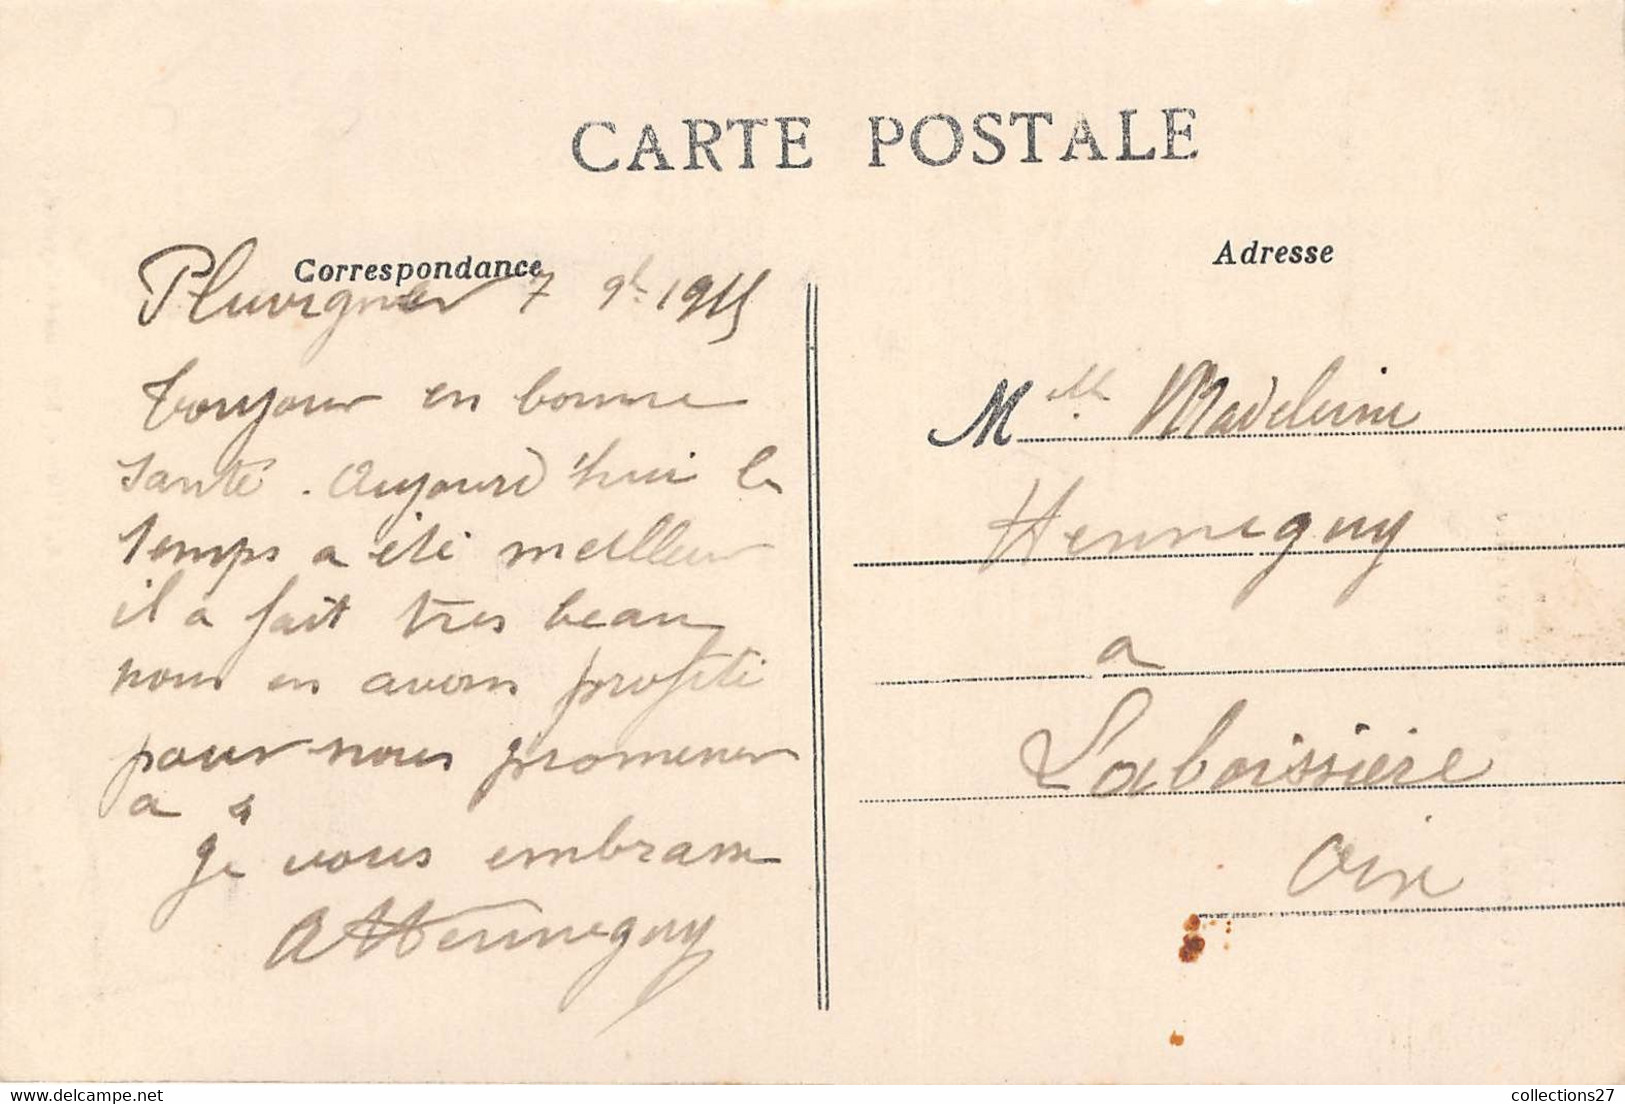 CARTE POSTALE
Correspondance
Pluvigner 7 9bre 1915
toujours en bonne
santé. Aujourd'hui le
temps a été meilleur
il a fait très beau
nous en avons profité
pour nous promener
a a
je vous embrasse
A Henneguy
Adresse
Mlle Madeleine
Henneguy
a
Laboissière
Oise
collections27